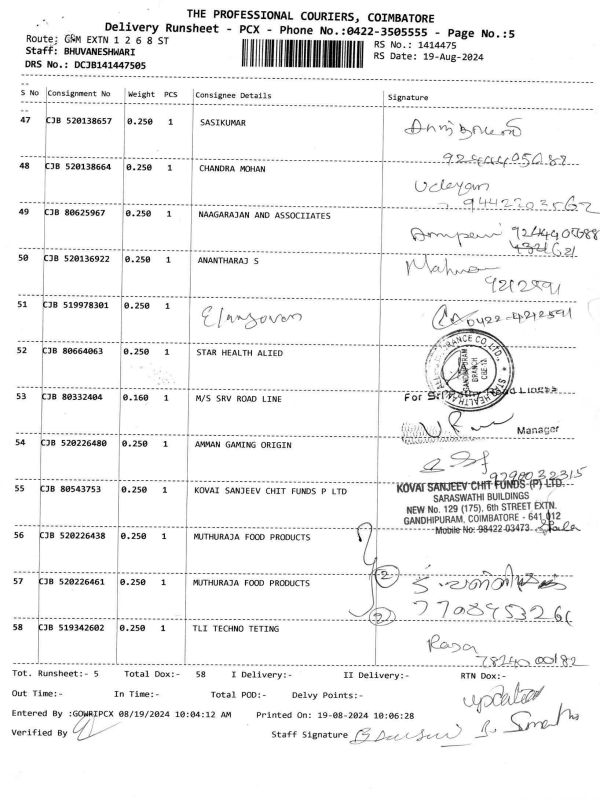 THE PROFESSIONAL COURIERS, COIMBATORE
Delivery Runsheet - PCX - Phone No.:0422-3505555 - Page No.:5
Route; GPM EXTN 1 2 6 8 ST
RS No.: 1414475
Staff: BHUVANESHWARI
RS Date: 19-Aug-2024
DRS No.: DCJB141447505
S No Consignment No Weight PCS Consignee Details Signature
47 CJB 520138657 0.250 1 SASIKUMAR
48 CJB 520138664 0.250 1 CHANDRA MOHAN
Udayan
49 CJB 80625967 0.250 1 NAAGARAJAN AND ASSOCIIATES
50 CJB 520136922 0.250 1 ANANTHARAJ S
51 CJB 519978301 0.250 1 Elangovan
0422-4212591
52 CJB 80664063 0.250 1 STAR HEALTH ALIED
GANDHIPURAM
BRANCH
CBE-12
53 CJB 80332404 0.160 1 M/S SRV ROAD LINE
Manager
54 CJB 520226480 0.250 1 AMMAN GAMING ORIGIN
9790032315
55 CJB 80543753 0.250 1 KOVAI SANJEEV CHIT FUNDS P LTD
KOVAI SANJEEV CHIT FUNDS (P) LTD.
SARASWATHI BUILDINGS
NEW No. 129 (175), 6th STREET EXTN.
GANDHIPURAM, COIMBATORE - 641 012
Mobile No: 98422 03473
56 CJB 520226438 0.250 1 MUTHURAJA FOOD PRODUCTS
2
57 CJB 520226461 0.250 1 MUTHURAJA FOOD PRODUCTS
58 CJB 519342602 0.250 1 TLI TECHNO TETING
Rasa
Tot. Runsheet:- 5 Total Dox:- 58 I Delivery:- II Delivery:- RTN Dox:-
Out Time:- In Time:- Total POD:- Delvy Points:-
updated
Entered By :GOWRIPCX 08/19/2024 10:04:12 AM Printed On: 19-08-2024 10:06:28
Verified By
Staff Signature